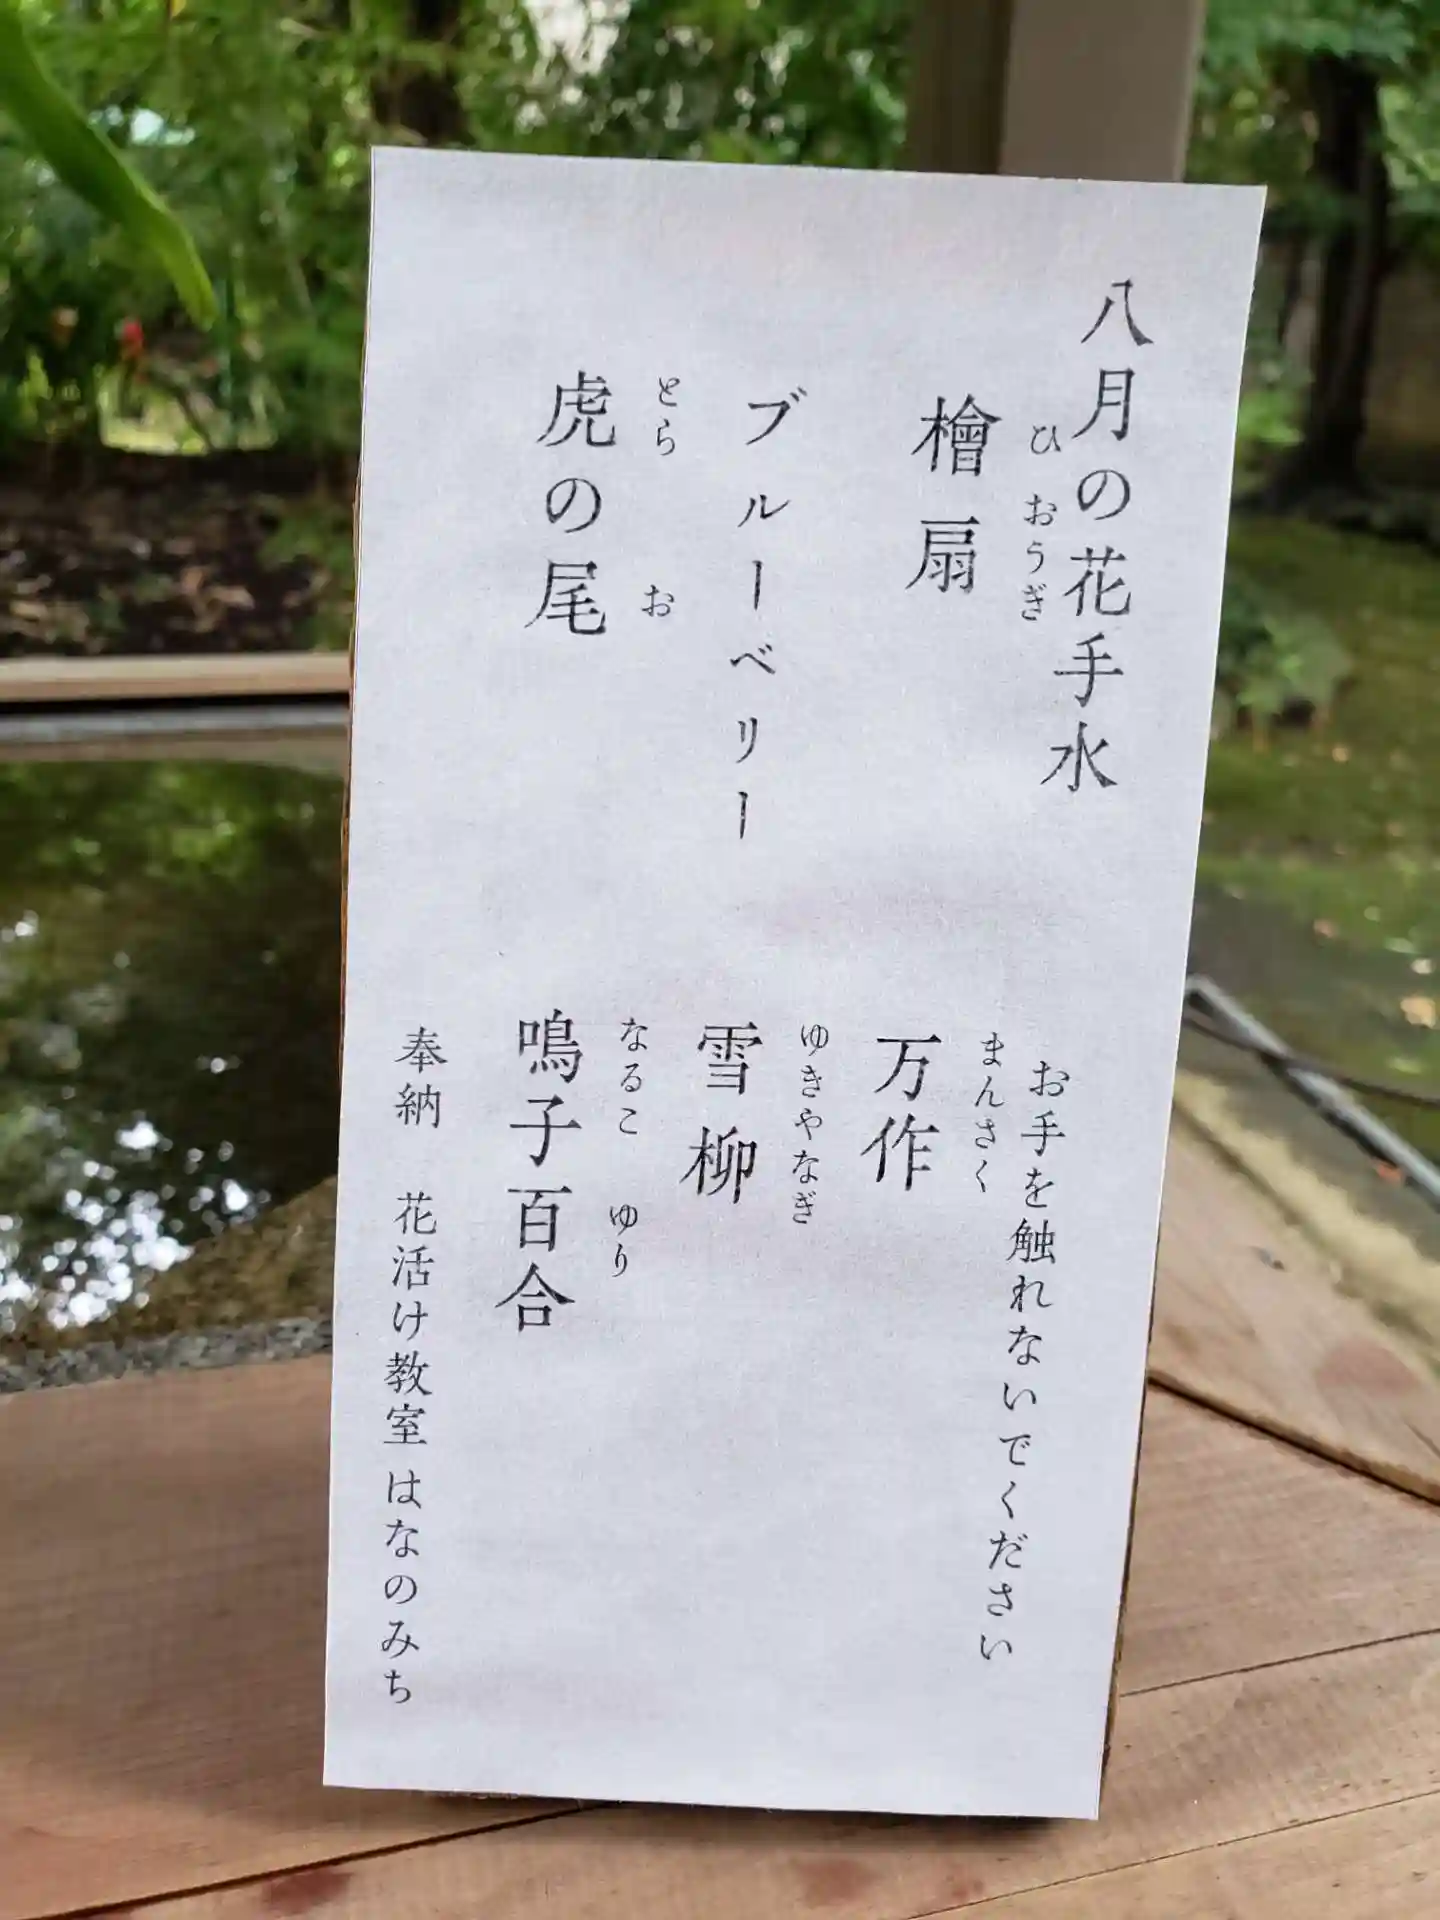 八月の花手水
お手を触れないでください
ひおうぎ
檜扇
まんさく
万作
ブルーベリー
ゆきやなぎ
雪柳
とら お
虎の尾
なるこ ゆり
鳴子百合
奉納 花活け教室 はなのみち